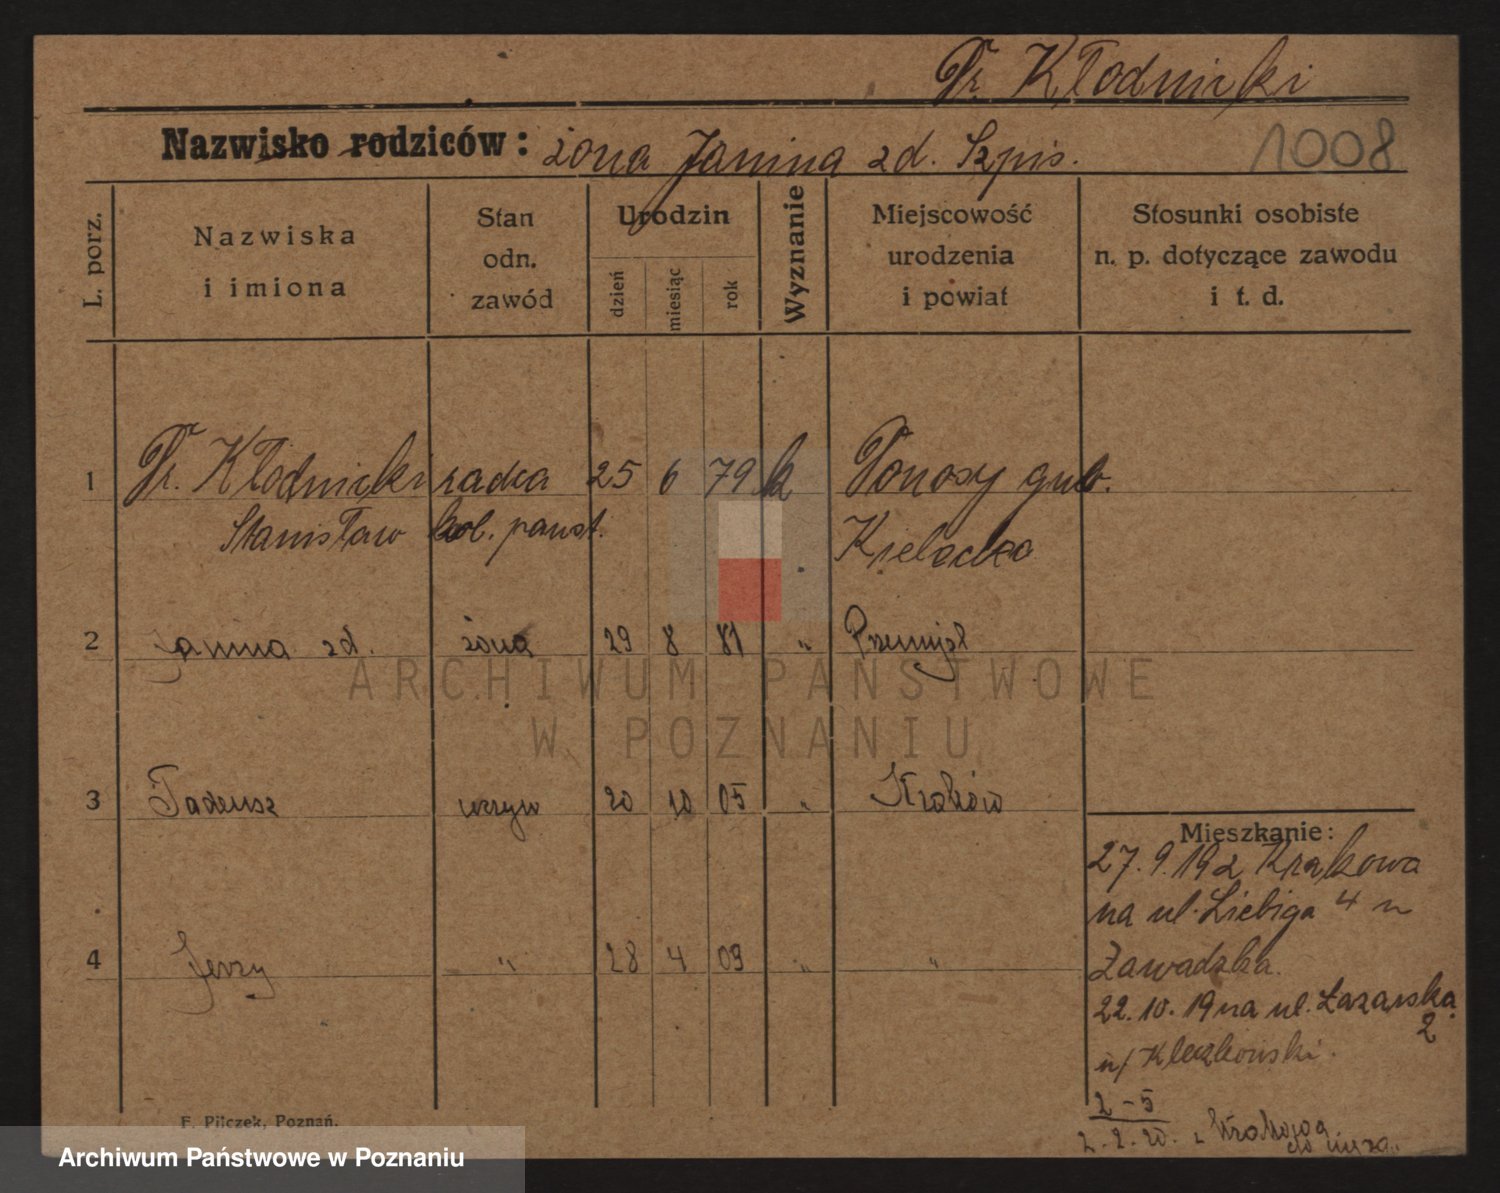 Dr. Kłodnicki
Nazwisko rodziców: żona Janina zd. Szpis.
1008
L. porz.
Nazwiska
i imiona
Stan
odn.
zawód
Urodzin
dzień
miesiąc
rok
Wyznanie
Miejscowość
urodzenia
i powiat
Stosunki osobiste
n. p. dotyczące zawodu
i t. d.
1 Dr. Kłodnicki radca 25 6 79 k Ponosy gub.
Stanisław kol. państ. Kielecka
2 Janina zd. żona 29 8 81 „ Przemyśl
3 Tadeusz uczyń 20 10 05 „ Kraków
4 Jerzy „ 28 4 09 „ „
Mieszkanie:
27.9.19 z Krakowa
na ul. Liebiga 4 u
Zawadzka.
22.10.19 na ul. Łazarska
2
u/ Kleczkowski.
2-5
2.2.20. Krakowa
F. Pilczek, Poznań.
ARCHIWUM PAŃSTWOWE
W POZNANIU
Archiwum Państwowe w Poznaniu